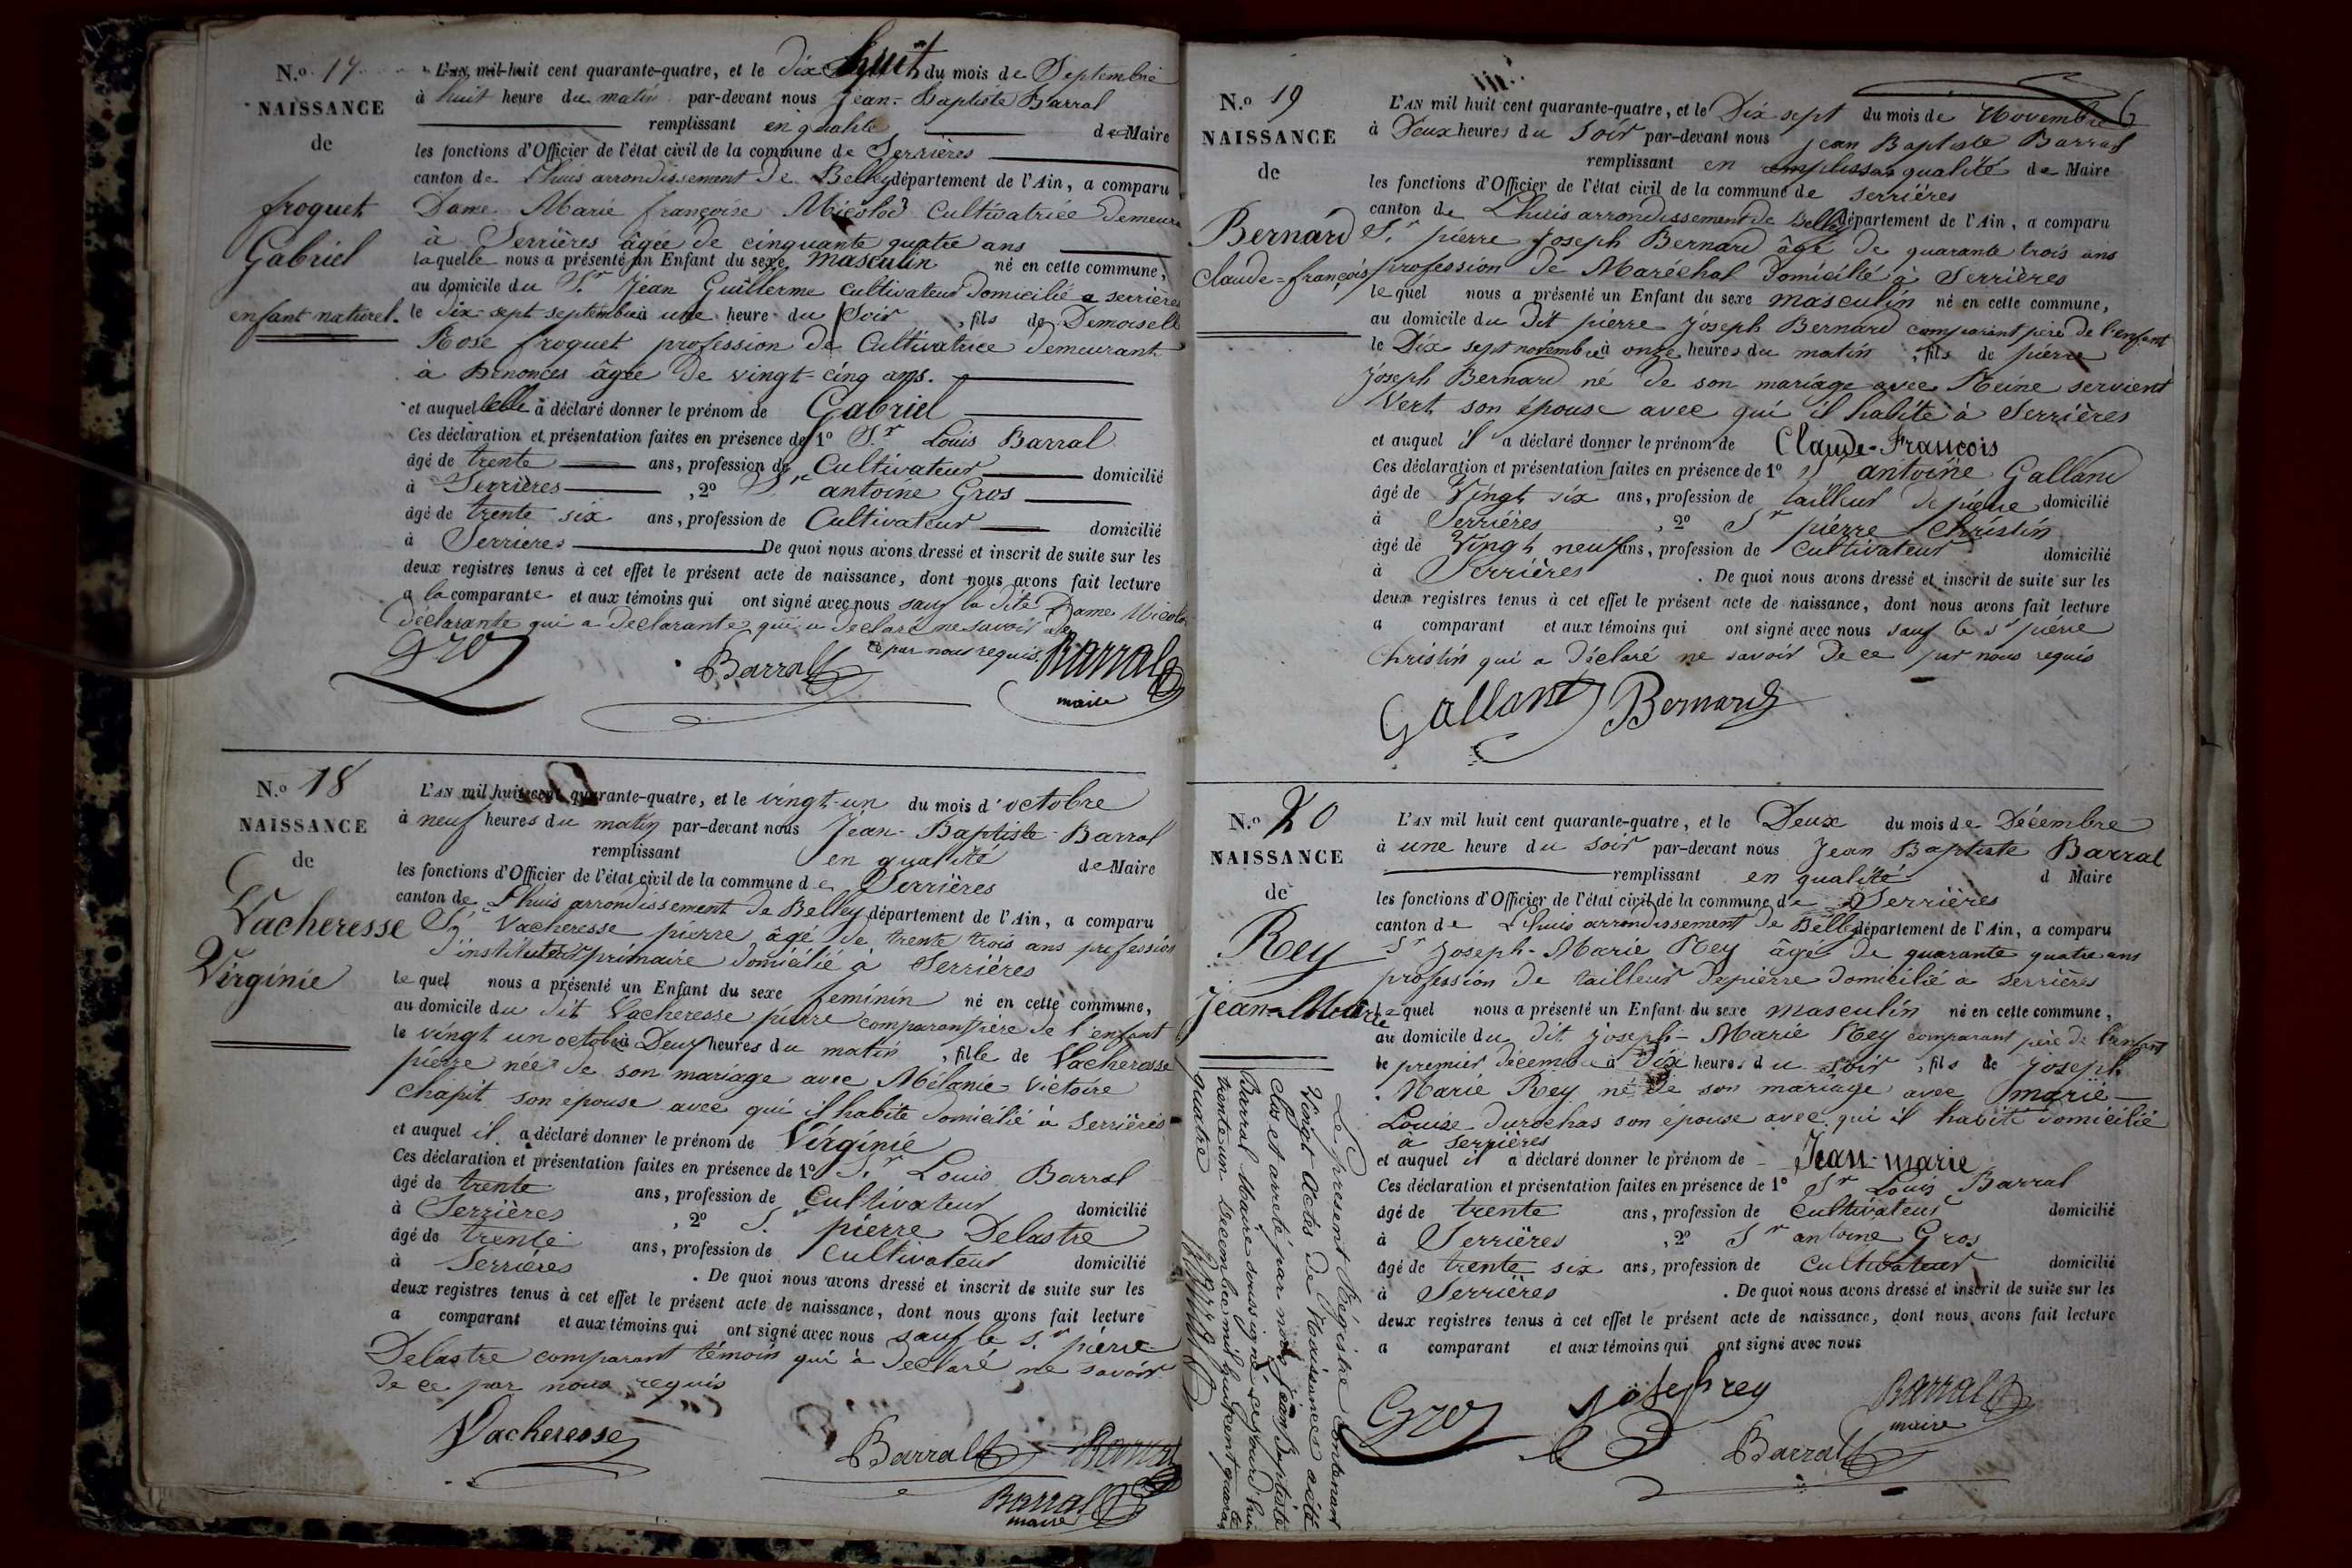 N.o 17
NAISSANCE
de
froquet
Gabriel
enfant naturel.
L'AN mil huit cent quarante-quatre, et le dix huit du mois de Septembre
à huit heure du matin par-devant nous Jean-Baptiste Barral
remplissant en qualité de Maire
les fonctions d'Officier de l'état civil de la commune de Serrières
canton de Lhuis arrondissement de Belley département de l'Ain, a comparu
Dame Marie françoise Micolod Cultivatrice Demeure
à Serrières âgée de cinquante quatre ans
laquelle nous a présenté un Enfant du sexe masculin né en cette commune,
au domicile du Sr Jean Guillerme cultivateur domicilié a serrières
le dix-sept septembre à une heure du Soir, fils de Demoiselle
Rose froquet profession de Cultivatrice demeurant
à Benonces âgée de vingt-cinq ans.
et auquel elle a déclaré donner le prénom de Gabriel
Ces déclaration et présentation faites en présence de 1o Sr Louis Barral
âgé de trente ans, profession de Cultivateur domicilié
à Serrières, 2o Sr antoine Gros
âgé de trente six ans, profession de Cultivateur domicilié
à Serrières De quoi nous avons dressé et inscrit de suite sur les
deux registres tenus à cet effet le présent acte de naissance, dont nous avons fait lecture
a la comparante et aux témoins qui ont signé avec nous sauf la dite Dame Micolod
déclarante qui a declarante qui a declaré ne savoir de
ce par nous requis.
Gros Barral Barral
maire
N.o 18
NAISSANCE
de
Vacheresse
Virginie
L'AN mil huit cent quarante-quatre, et le vingt-un du mois d'octobre
à neuf heures du matin par-devant nous Jean-Baptiste-Barral
remplissant en qualité de Maire
les fonctions d'Officier de l'état civil de la commune de Serrières
canton de Lhuis arrondissement de Belley département de l'Ain, a comparu
Sr Vacheresse pierre âgé de trente trois ans profession
d'instituteur primaire domicilié à Serrières
le quel nous a présenté un Enfant du sexe feminin né en cette commune,
au domicile du dit Vacheresse pierre comparant père de l'enfant
le vingt un octobre à Deux heures du matin, fille de Vacheresse
pierre née de son mariage avec Mélanie Victoire
chapit son épouse avec qui il habite domicilié à serrières
et auquel il a déclaré donner le prénom de Virginie
Ces déclaration et présentation faites en présence de 1o Sr Louis Barral
âgé de trente ans, profession de Cultivateur domicilié
à Serrières, 2o Sr pierre Delastre
âgé de trente ans, profession de cultivateur domicilié
à Serrières. De quoi nous avons dressé et inscrit de suite sur les
deux registres tenus à cet effet le présent acte de naissance, dont nous avons fait lecture
a comparant et aux témoins qui ont signé avec nous sauf le Sr pierre
Delastre comparant témoin qui à declaré ne savoir
de ce par nous requis
Vacheresse Barral Barral
Barral
maire
6
N.o 19
NAISSANCE
de
Bernard
Claude=françois
L'AN mil huit cent quarante-quatre, et le Dix sept du mois de Novembre
à Deux heures du soir par-devant nous jean Baptiste Barral
remplissant en qualité de Maire
les fonctions d'Officier de l'état civil de la commune de serrières
canton de Lhuis arrondissement de Belley département de l'Ain, a comparu
Sr pierre joseph Bernard âgé de quarante trois ans
profession de Maréchal domicilié à serrières
le quel nous a présenté un Enfant du sexe masculin né en cette commune,
au domicile du dit pierre joseph Bernard comparant père de l'enfant
le Dix sept novembre à onze heures du matin, fils de pierre
joseph Bernard né de son mariage avec Reine servient
Vert son épouse avec qui il habite à Serrières
et auquel il a déclaré donner le prénom de Claude-François
Ces déclaration et présentation faites en présence de 1o Sr antoine Galland
âgé de Vingt six ans, profession de tailleur de pierre domicilié
à Serrières, 2o Sr pierre Christin
âgé de Vingt neuf ans, profession de cultivateur domicilié
à Serrières. De quoi nous avons dressé et inscrit de suite sur les
deux registres tenus à cet effet le présent acte de naissance, dont nous avons fait lecture
a comparant et aux témoins qui ont signé avec nous sauf le Sr pierre
Christin qui a déclaré ne savoir de ce par nous requis
Galland Bernard
N.o 20
NAISSANCE
de
Rey
Jean-Marie
L'AN mil huit cent quarante-quatre, et le Deux du mois de Décembre
à une heure du soir par-devant nous Jean Baptiste Barral
remplissant en qualité d Maire
les fonctions d'Officier de l'état civil de la commune de Serrières
canton de Lhuis arrondissement de Belley département de l'Ain, a comparu
Sr Joseph-Marie Rey âgé de quarante quatre ans
profession de tailleur depierre domicilié à serrières
le quel nous a présenté un Enfant du sexe masculin né en cette commune,
au domicile du dit joseph-Marie Rey comparant père de l'enfant
le premier décembre à Dix heures du soir, fils de joseph
Marie Rey né de son mariage avec marie-
Louise durochas son épouse avec qui il habite domicilié
à serrières
et auquel il a déclaré donner le prénom de Jean-marie
Ces déclaration et présentation faites en présence de 1o Sr Louis Barral
âgé de trente ans, profession de cultivateur domicilié
à Serrières, 2o Sr antoine Gros
âgé de trente six ans, profession de cultivateur domicilié
à Serrières. De quoi nous avons dressé et inscrit de suite sur les
deux registres tenus à cet effet le présent acte de naissance, dont nous avons fait lecture
a comparant et aux témoins qui ont signé avec nous
Gros joseph rey Barral
maire
Barral
Le present Régistre contenant
Vingt Actes de Naissances a été
Clos et arreté par nous Jean Baptiste
Barral Maire soussigné cejourd'hui
trente un Decembre mil huit cent quarante
quatre
Barral